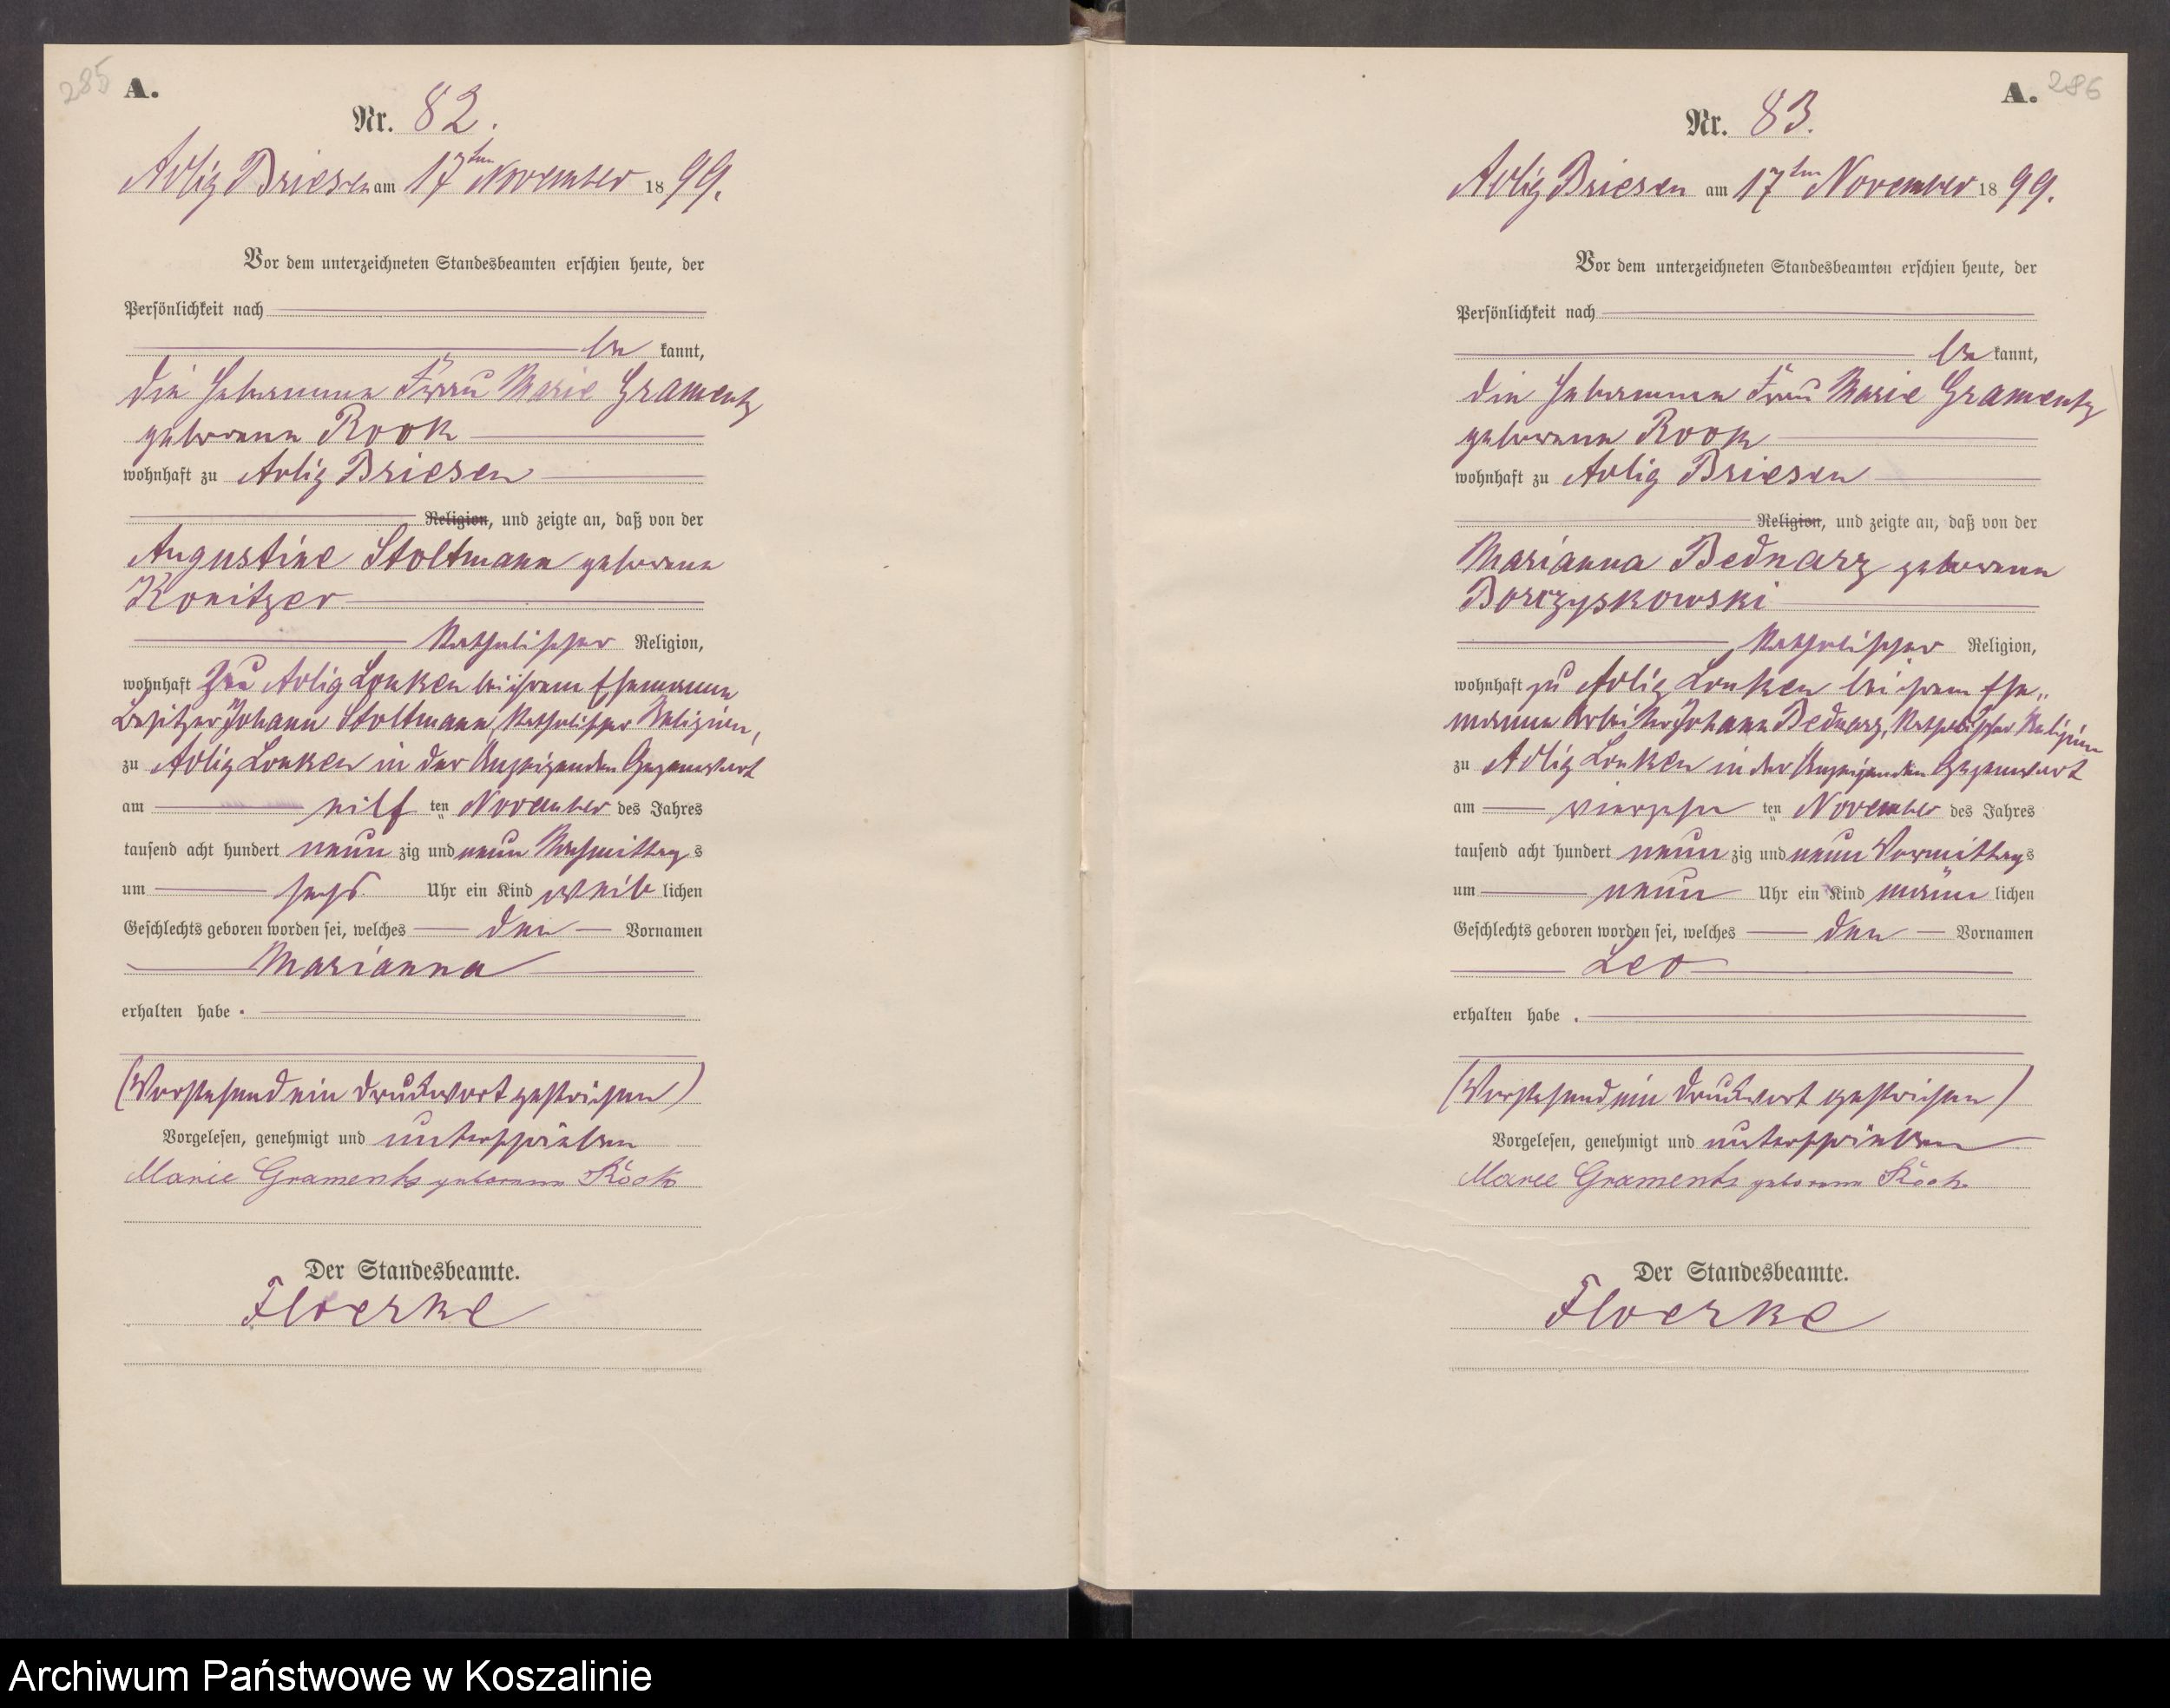 285
A.
Nr. 82.
Adlig Briesen am 17ten November 1899.
Vor dem unterzeichneten Standesbeamten erschien heute, der
Persönlichkeit nach
be kannt,
die Hebamme Frau Marie Gramentz
geborene Rook
wohnhaft zu Adlig Briesen
Religion, und zeigte an, daß von der
Augustine Stoltmann geborene
Konitzer
katholischer Religion,
wohnhaft zu Adlig Lonken bei ihrem Ehemanne
Besitzer Johann Stoltmann, katholischer Religion,
zu Adlig Lonken in der Anzeigenden Gegenwart
am eilf ten November des Jahres
tausend acht hundert neun zig und neun Nachmittags
um sechs Uhr ein Kind weib lichen
Geschlechts geboren worden sei, welches den Vornamen
Marianna
erhalten habe.
(Vorstehend ein Druckwort gestrichen)
Vorgelesen, genehmigt und unterschrieben
Marie Graments geborene Rook
Der Standesbeamte.
Floerke
A. 286
Nr. 83.
Adlig Briesen am 17ten November 1899.
Vor dem unterzeichneten Standesbeamten erschien heute, der
Persönlichkeit nach
be kannt,
die Hebamme Frau Marie Gramentz
geborene Rook
wohnhaft zu Adlig Briesen
Religion, und zeigte an, daß von der
Marianna Bednarz geborene
Borczyskowski
katholischer Religion,
wohnhaft zu Adlig Lonken bei ihrem Ehe„
manne Arbeiter Johann Bednarz, katholischer Religion
zu Adlig Lonken in der Anzeigenden Gegenwart
am vierzehn ten November des Jahres
tausend acht hundert neun zig und neun Vormittags
um neun Uhr ein Kind männ lichen
Geschlechts geboren worden sei, welches den Vornamen
Leo
erhalten habe.
(Vorstehend ein Druckwort gestrichen)
Vorgelesen, genehmigt und unterschrieben
Marie Graments geborene Rook
Der Standesbeamte.
Floerke
Archiwum Państwowe w Koszalinie